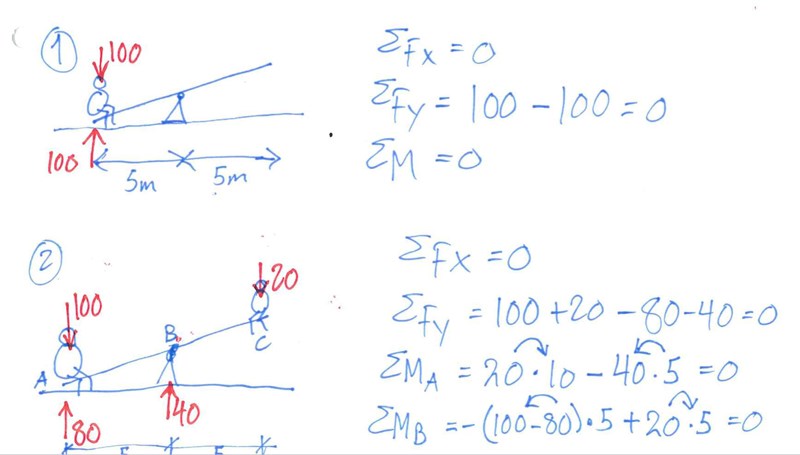 1
100
ΣFx = 0
ΣFy = 100 - 100 = 0
ΣM = 0
100
5m 5m
2
100
20
B
C
A
80
40
5 5
ΣFx = 0
ΣFy = 100 + 20 - 80 - 40 = 0
ΣMA = 20 · 10 - 40 · 5 = 0
ΣMB = -(100-80) · 5 + 20 · 5 = 0